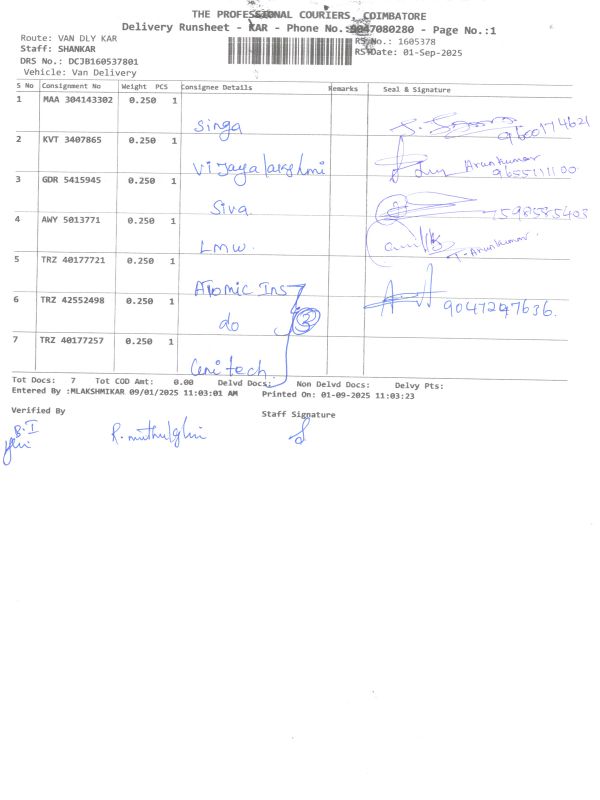 THE PROFESSIONAL COURIERS, COIMBATORE
Delivery Runsheet - KAR - Phone No.:9047080280 - Page No.:1
Route: VAN DLY KAR
Staff: SHANKAR
DRS No.: DCJB160537801
Vehicle: Van Delivery
RS No.: 1605378
RS Date: 01-Sep-2025
S No Consignment No Weight PCS Consignee Details Remarks Seal & Signature
1 MAA 304143302 0.250 1
Singa 9600174621
2 KVT 3407865 0.250 1
Vijayalakshmi Arunkumar
9655111100
3 GDR 5415945 0.250 1
Siva 7598585403
4 AWY 5013771 0.250 1
LMW. T. Arunkumar.
5 TRZ 40177721 0.250 1
Atomic Ins
6 TRZ 42552498 0.250 1
do 3 9047247636.
7 TRZ 40177257 0.250 1
Unitech
Tot Docs: 7 Tot COD Amt: 0.00 Delvd Docs: Non Delvd Docs: Delvy Pts:
Entered By :MLAKSHMIKAR 09/01/2025 11:03:01 AM Printed On: 01-09-2025 11:03:23
Verified By Staff Signature